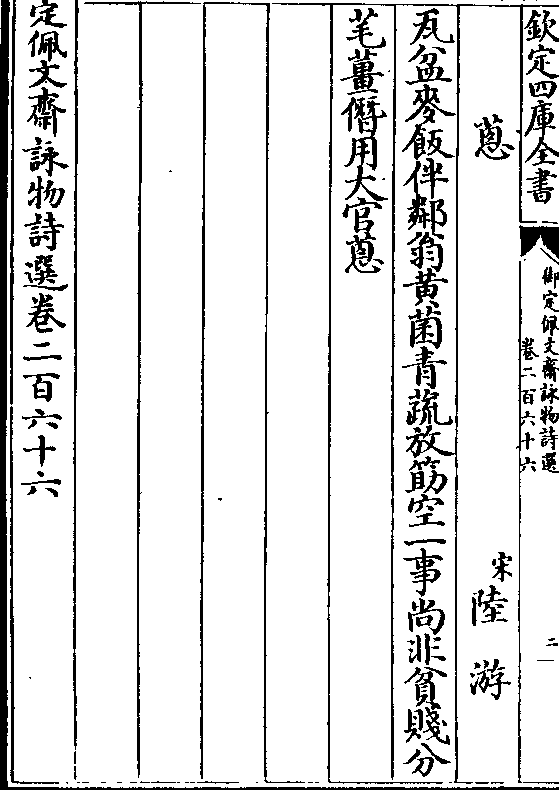 欽定四庫全書
御定佩文齋詠物詩選
卷二百六十六
二
蔥
宋 陸游
瓦盆麥飯伴鄰翁黃菌青蔬放筯空一事尚非貧賤分
芼薑僭用大官蔥
定佩文齋詠物詩選卷二百六十六